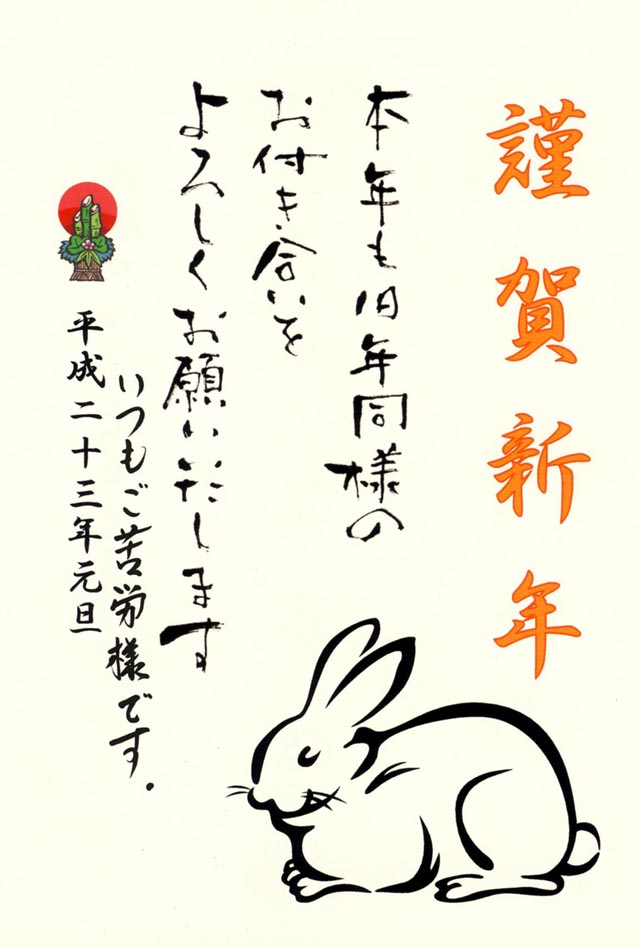 謹賀新年
本年も旧年同様の
お付き合いを
よろしくお願いいたします
いつもご苦労様です.
平成二十三年元旦